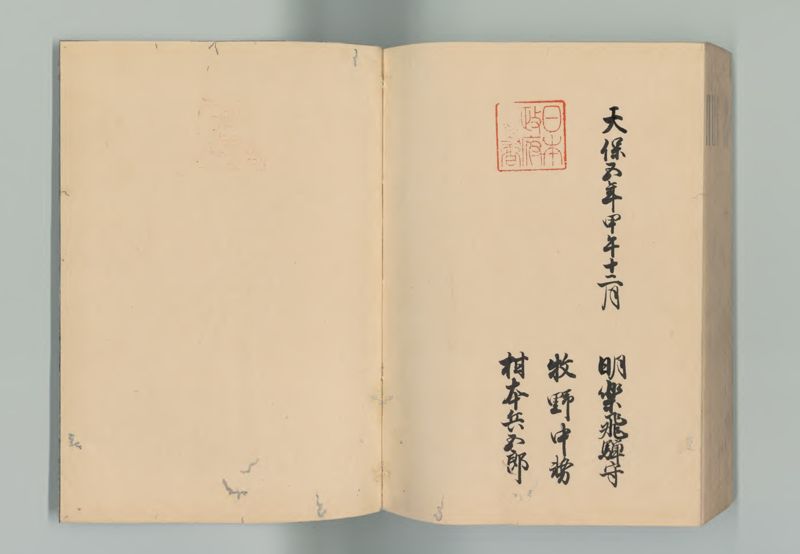 天保五年甲午十二月
明楽飛騨守
牧野中務
柑本兵五郎
日本
政府
図書